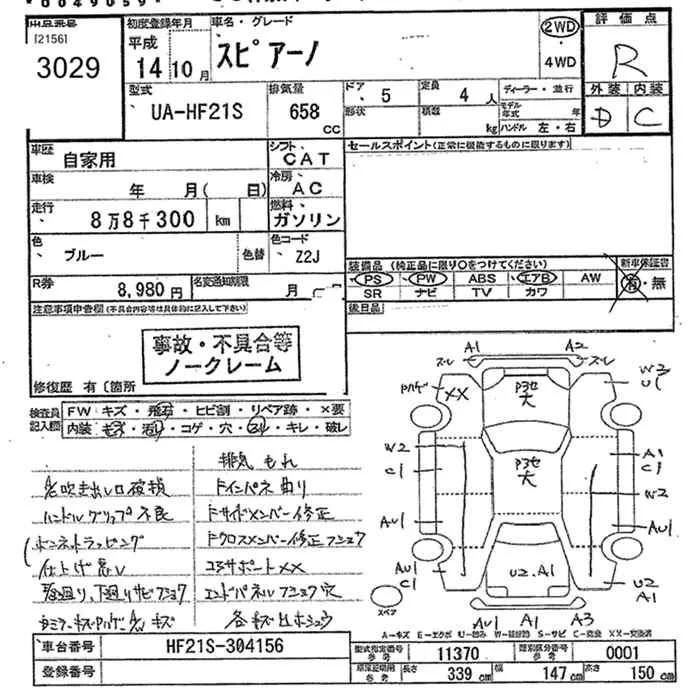 [2156]
3029
初度登録年月
平成
14 10月
車名・グレード
スピアーノ
2WD
4WD
評価点
R
外装 内装
D C
型式
UA-HF21S
排気量
658
CC
ドア
5
形状
定員
4人
積載
kg
ディーラー・並行
モデル年式 年
ハンドル 左・右
車歴
自家用
シフト
CAT
車検
年 月( 日)
冷房
AC
走行
8万8千300 km
燃料
ガソリン
色
ブルー
色替
色コード
Z2J
R券
8,980円
名変通知期限
月
セールスポイント(正常に機能するものに限ります)
装備品(純正品に限り○をつけてください)
PS PW ABS エアB AW
SR ナビ TV カワ
新車保証書
有・無
後日品
注意事項申告欄(不具合内容等は具体的に記入して下さい)
事故・不具合等
ノークレーム
修復歴 有〔箇所
検査員
記入欄
FW キズ・飛石・ヒビ割・リペア跡・×要
内装 キズ・汚れ・コゲ・穴・スレ・キレ・破レ
排気もれ
ハンドルグリップ不良
ドインパネ曲り
ドサイドメンバー修正
ボンネットラッピング
仕上げ悪い
コアサポートXX
A1 A2
スレ スレ
XX
W3
U1
P3セ大
W2
C1
P3セ大
A1
C1
W2
AU1
AU1
AU1
C1
U2.A1
U2
A1
スペア
AU1 A1 A3
A-キズ E-エクボ U-凹み W-補修跡 S-サビ C-腐食 XX-交換済
車台番号
HF21S-304156
登録番号
型式指定番号
参考
11370
類別区分番号
参考
0001
長さ
339 cm
幅
147 cm
高さ
150 cm